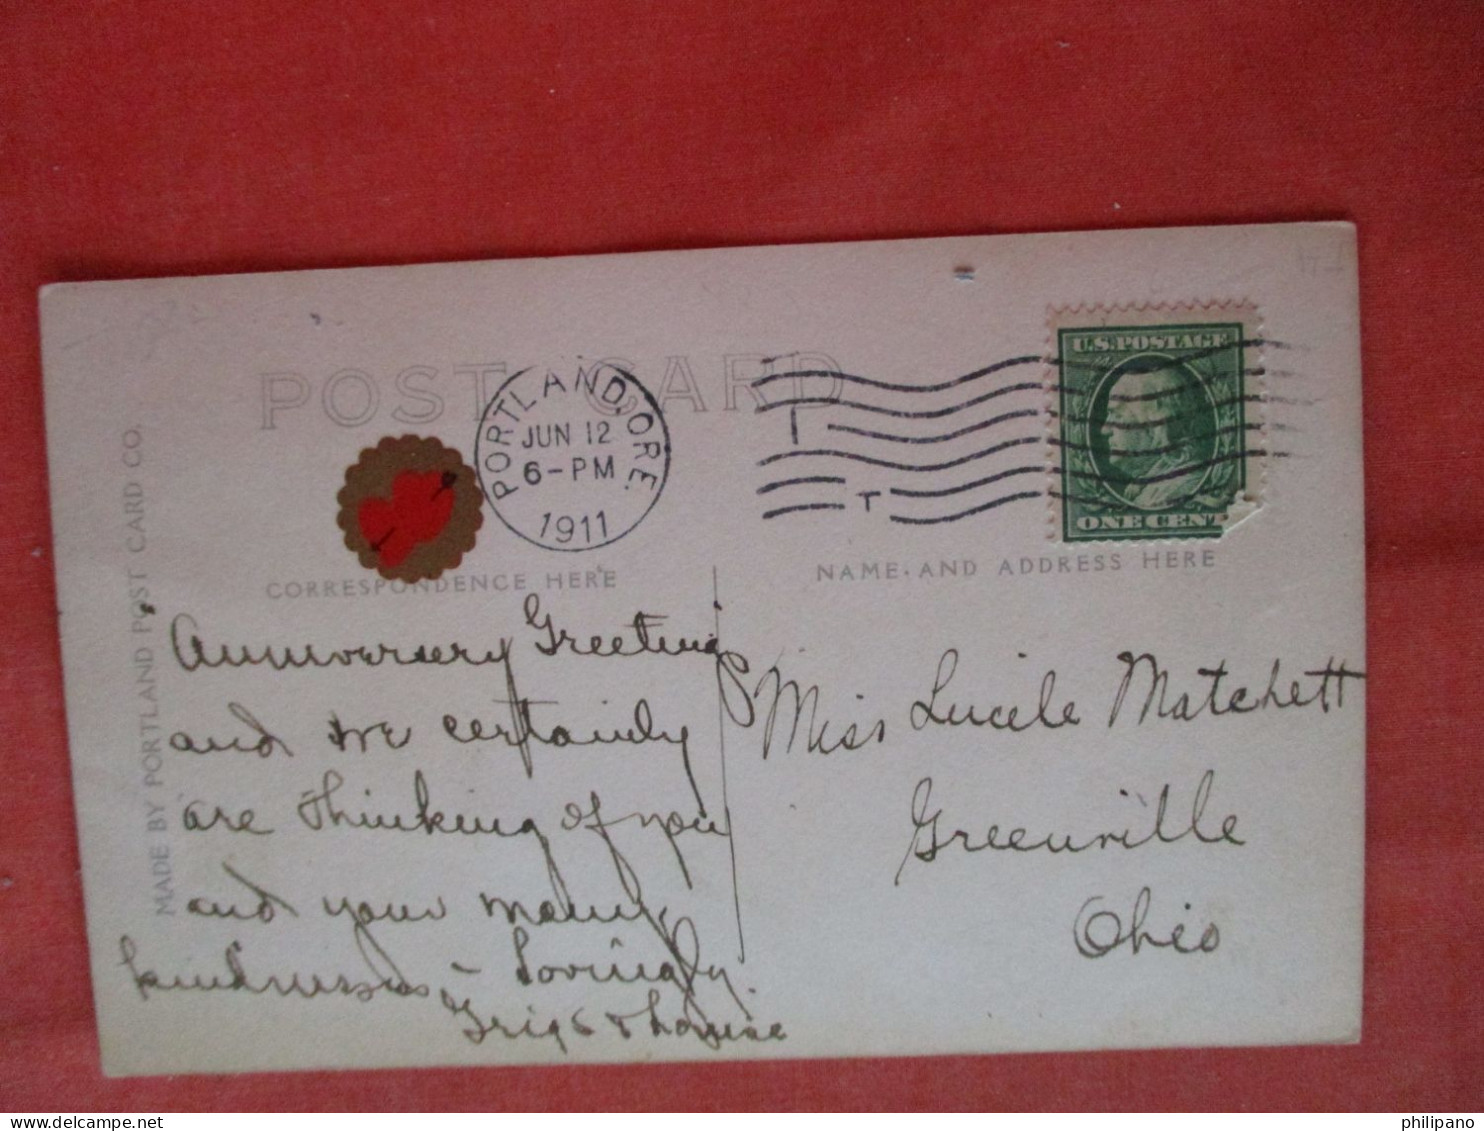 POST CARD
PORTLAND, ORE.
JUN 12
6-PM
1911
U.S. POSTAGE
ONE CENT
CORRESPONDENCE HERE
NAME AND ADDRESS HERE
MADE BY PORTLAND POST CARD CO.
Anniversary Greeting
and we certainly
are thinking of you
and your many
kindnesses - Lovingly
Grigs &
Miss Lucile Matchett
Greenville
Ohio
philipano